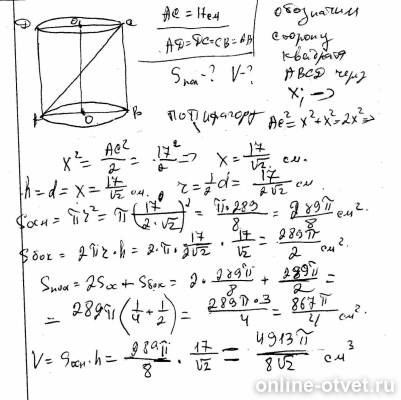 D O₁ C
A O B
AC = 17см
AD=DC=CB=AB
Sпол-? V-?
обозначим
сторону
квадрата
ABCD через
x; →
по Пифагору
AC² = x²+x² = 2x² ⇒
x² = AC²/2 = 17²/2 ⇒ x = 17/√2 см.
h = d = x = 17/√2 см. r = 1/2 d = 17/2√2 см
Sосн = πr² = π(17/2·√2)² = π·289/8 = 289π/8 см²
Sбок = 2πr·h = 2·π·17/2√2 · 17/√2 = 289π/2 см².
Sпол = 2Sос + Sбок = 2·289π/8 + 289π/2 =
= 289π(1/4+1/2) = 289π·3/4 = 867π/4 см².
V = Sосн·h = 289π/8 · 17/√2 = 4913π/8√2 см³
online-otvet.ru